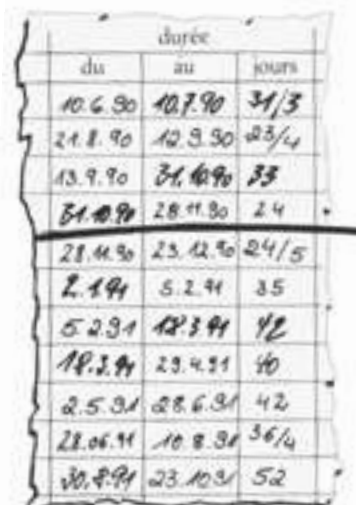 durée
du au jours
10.6.90 10.7.90 31/3
21.8.90 12.9.90 23/4
13.9.90 31.10.90 33
31.10.90 28.11.90 24
28.11.90 23.12.90 24/5
2.1.91 5.2.91 35
5.2.91 18.3.91 42
18.3.91 29.4.91 40
2.5.91 28.6.91 42
28.06.91 10.8.91 36/4
30.8.91 23.10.91 52